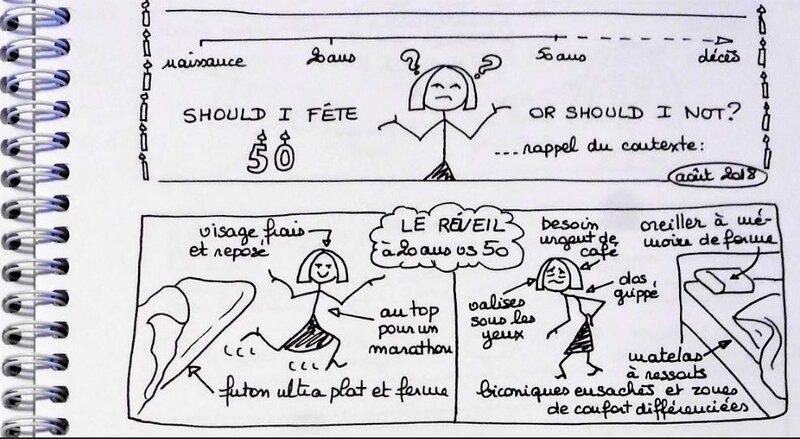 naissance 20 ans 50 ans décès
? ?
SHOULD I FÊTE
50
OR SHOULD I NOT?
...rappel du contexte:
août 2018
LE RÉVEIL
à 20 ans vs 50
visage frais
et reposé
au top
pour un
marathon
futon ultra plat et ferme
besoin
urgent de
café
dos
grippé
valises
sous les
yeux
oreiller à mé-
moire de forme
matelas
à ressorts
biconiques ensachés et zones
de confort différenciées